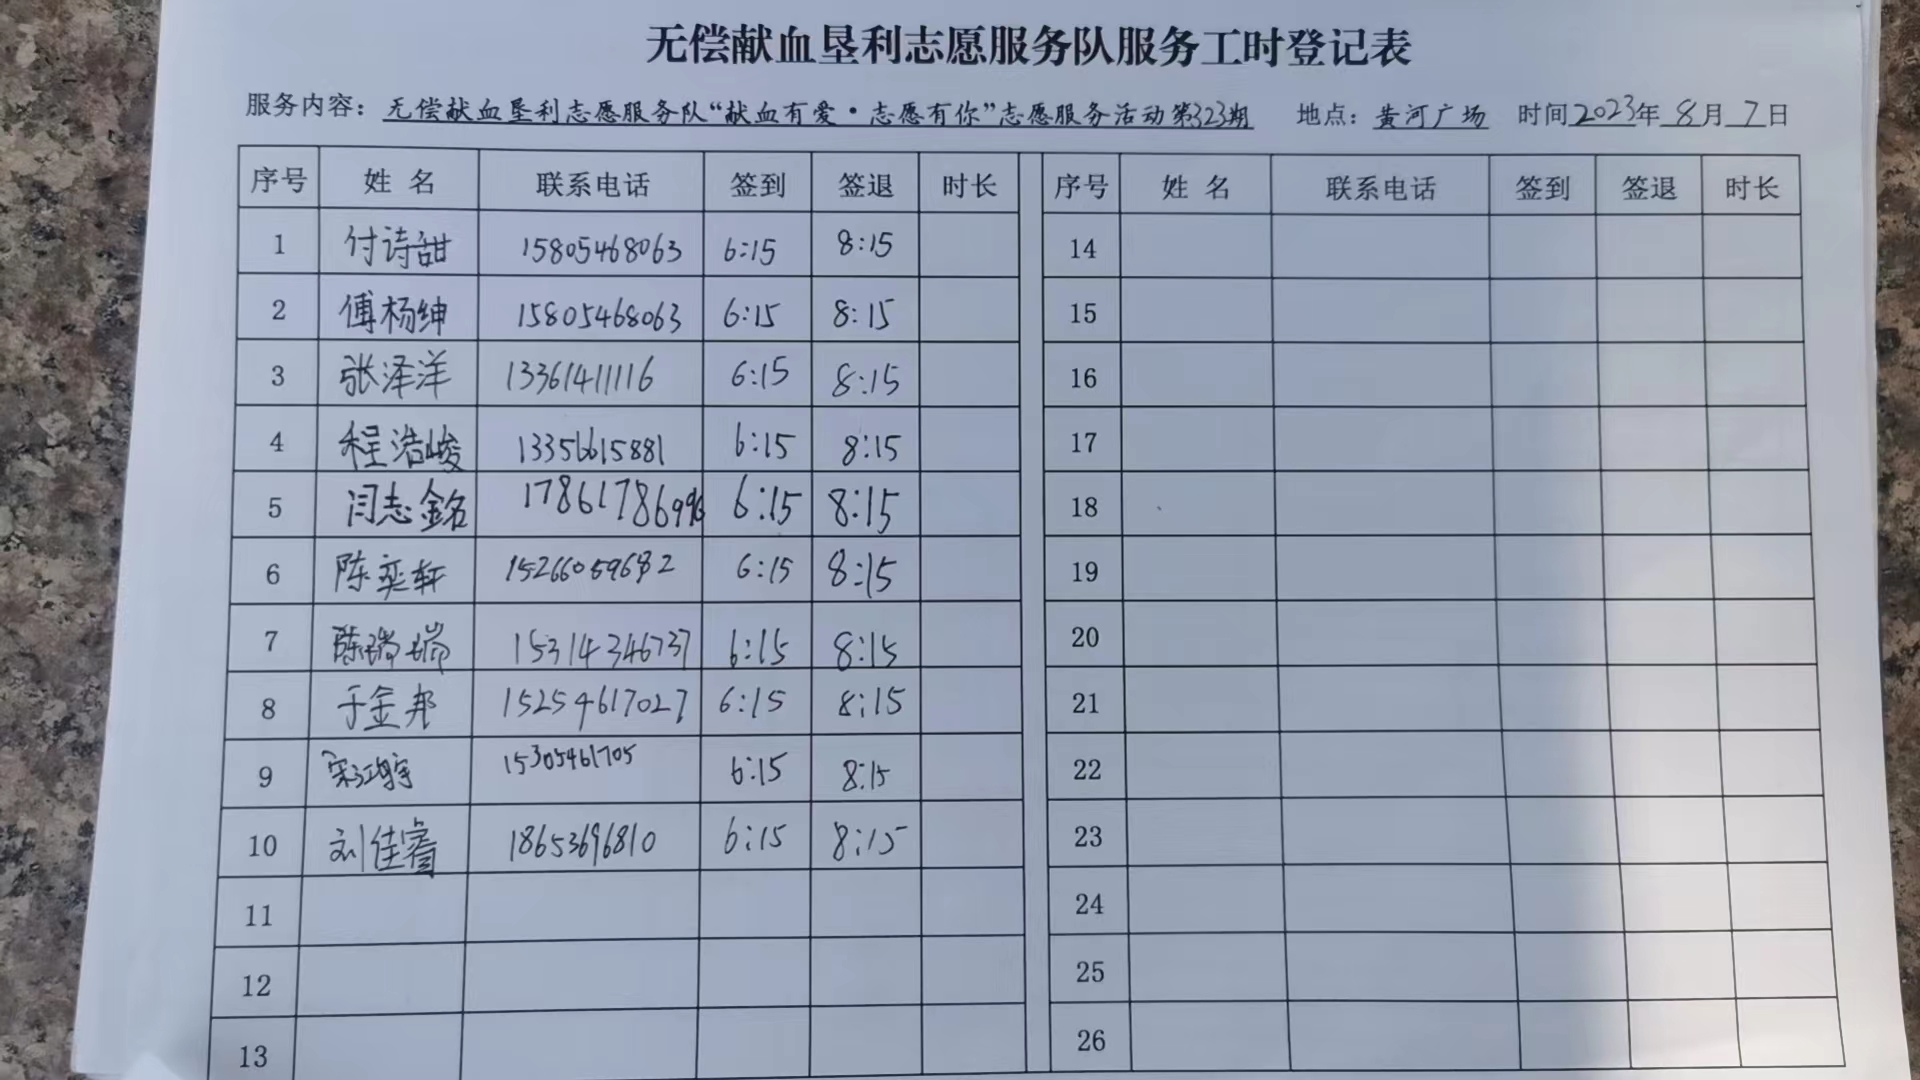 无偿献血垦利志愿服务队服务工时登记表
服务内容：无偿献血垦利志愿服务队“献血有爱·志愿有你”志愿服务活动第323期 地点：黄河广场 时间2023年8月7日
序号 姓名 联系电话 签到 签退 时长 序号 姓名 联系电话 签到 签退 时长
1 付诗甜 15805468063 6:15 8:15 14
2 傅杨绅 15805468063 6:15 8:15 15
3 张泽洋 13361411116 6:15 8:15 16
4 程浩峻 13356615881 6:15 8:15 17
5 闫志铭 6:15 8:15 18
6 陈奕轩 6:15 8:15 19
7 陈瑞瑞 15314346737 6:15 8:15 20
8 于金邦 15254617027 6:15 8:15 21
9 15305461705 6:15 8:15 22
10 刘佳睿 18653696810 6:15 8:15 23
11 24
12 25
13 26